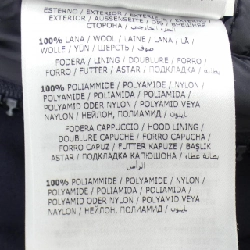 ESTERNO / EXTERIOR / EXTERIEUR
EXTERIOR / AUSSENSEITE /
СТОРОНА /
100% LANA / WOOL / LAINE / LANA / LÃ
WOLLE / YÜN / ШЕРСТЬ / صوف
FODERA / LINING / DOUBLURE / FORRO /
FORRO / FUTTER / ASTAR / ПОДКЛАДКА / بطانة
100% POLIAMMIDE / POLYAMIDE / NYLON /
POLYAMIDE / POLIAMIDA / POLIAMIDA /
POLYAMID ODER NYLON / POLYAMID VEYA
NAYLON / НЕЙЛОН, ПОЛИАМИД /
FODERA CAPPUCCIO / HOOD LINING /
DOUBLURE CAPUCHE / FORRO CAPUCHA /
FORRO CAPUZ / FUTTER KAPUZE / BAŞLIK
ASTARI / ПОДКЛАДКА КАПЮШОНА / بطانة غطاء
الرأس
100% POLIAMMIDE / POLYAMIDE / NYLON /
POLYAMIDE / POLIAMIDA / POLIAMIDA /
POLYAMID ODER NYLON / POLYAMID VEYA
NAYLON / НЕЙЛОН, ПОЛИАМИД /